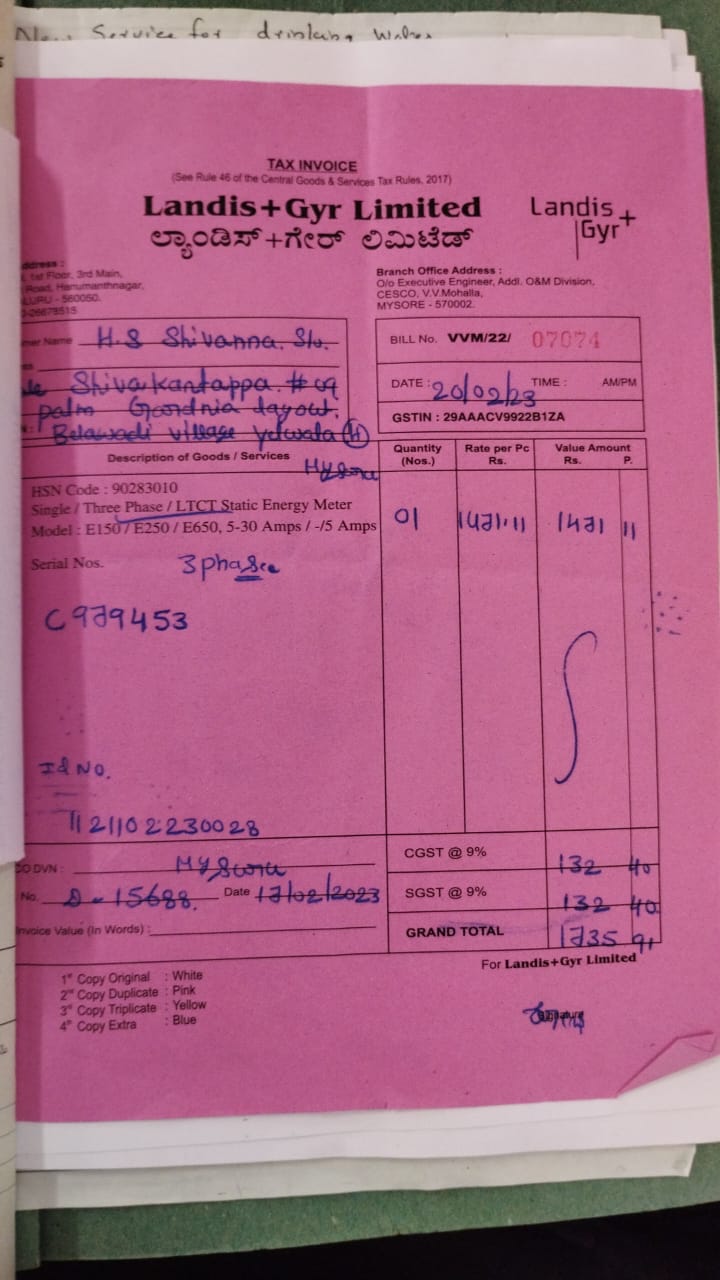 New Service for drinking Water
TAX INVOICE
(See Rule 46 of the Central Goods & Services Tax Rules, 2017)
Landis+Gyr Limited
ಲ್ಯಾಂಡಿಸ್+ಗೇರ್ ಲಿಮಿಟೆಡ್
Landis+
Gyr
ddress :
1st Floor, 3rd Main,
Road, Hanumanthnagar,
LURU - 560050.
-26678515
Branch Office Address :
O/o Executive Engineer, Addl. O&M Division,
CESCO, V.V.Mohalla,
MYSORE - 570002.
mer Name H.S Shivanna. S/o.
Shivarkantappa. #09
palm layout,
Belawadi village yelwala (H)
Mysore
BILL No. VVM/22/ 07074
DATE : 20/02/23 TIME : AM/PM
GSTIN : 29AAACV9922B1ZA
Description of Goods / Services Quantity (Nos.) Rate per Pc Rs. Value Amount Rs. P.
HSN Code : 90283010
Single / Three Phase / LTCT Static Energy Meter
Model : E150 / E250 / E650, 5-30 Amps / -/5 Amps 01 1471.11 1471 11
Serial Nos. 3 phase
C979453
Id No.
1121102230028
O DVN : Mysore
No. D-15688. Date 17/02/2023
Invoice Value (In Words) :
CGST @ 9% 132 40
SGST @ 9% 132 40
GRAND TOTAL 1735 91
For Landis+Gyr Limited
1st Copy Original : White
2nd Copy Duplicate : Pink
3rd Copy Triplicate : Yellow
4th Copy Extra : Blue
Signature